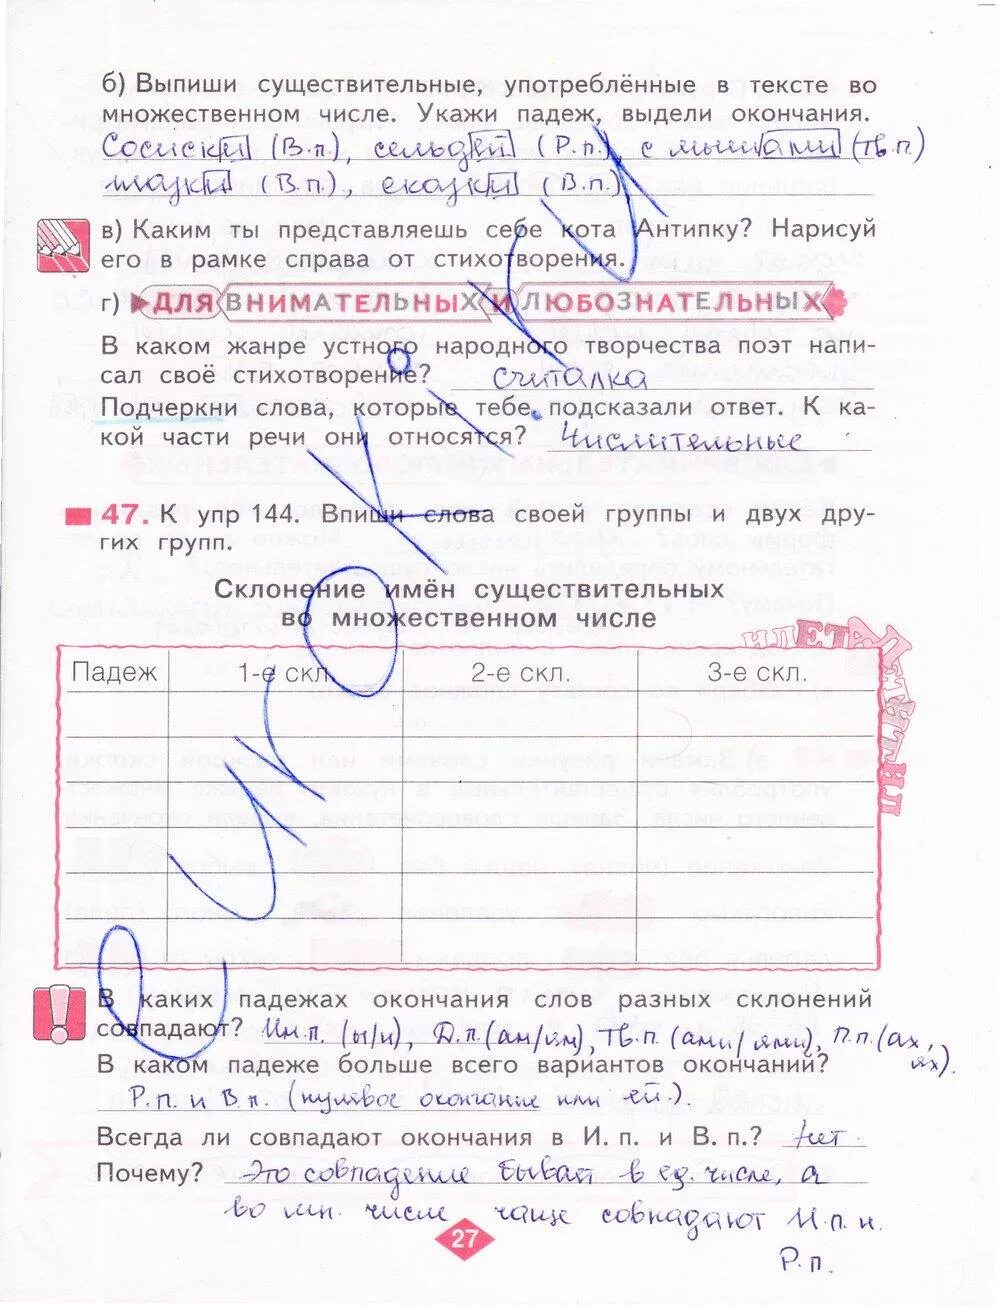 б) Выпиши существительные, употреблённые в тексте во
множественном числе. Укажи падеж, выдели окончания.
Сосиски (В.п.), сельдей (Р.п.), с мышами (тв.п.)
(В.п.), сказки (В.п.)
в) Каким ты представляешь себе кота Антипку? Нарисуй
его в рамке справа от стихотворения.
г) ДЛЯ ВНИМАТЕЛЬНЫХ И ЛЮБОЗНАТЕЛЬНЫХ
В каком жанре устного народного творчества поэт напи-
сал своё стихотворение? считалка
Подчеркни слова, которые тебе подсказали ответ. К ка-
кой части речи они относятся? Числительные
47. К упр 144. Впиши слова своей группы и двух дру-
гих групп.
Склонение имён существительных
во множественном числе
Падеж 1-е скл. 2-е скл. 3-е скл.
В каких падежах окончания слов разных склонений
совпадают? Им.п. (ы/и), Д.п. (ам/ям), Тв.п. (ами/ями), П.п. (ах,
ях).
В каком падеже больше всего вариантов окончаний?
Р.п. и В.п. (нулевое окончание или ей).
Всегда ли совпадают окончания в И. п. и В. п.? нет
Почему? Это совпадение бывает в ед. числе, а
во мн. числе чаще совпадают И.п. и
Р.п.
27